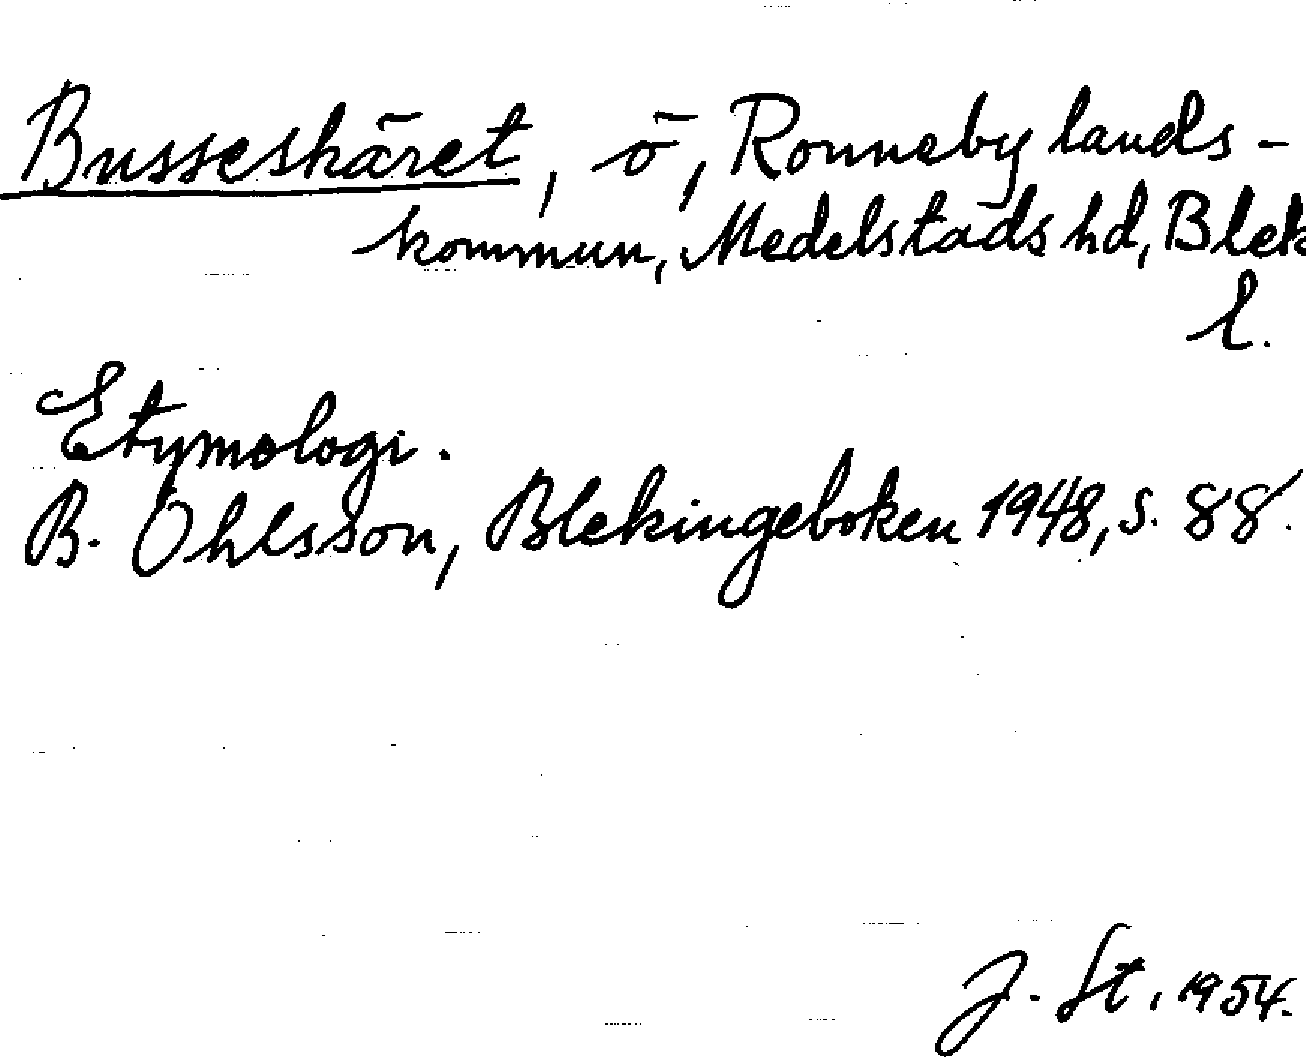 Busseskäret, ö, Ronneby lands-
kommun, Medelstads hd, Blek
l.
Etymologi.
B. Ohlsson, Blekingeboken 1948, s. 88.
J. St. 1954.